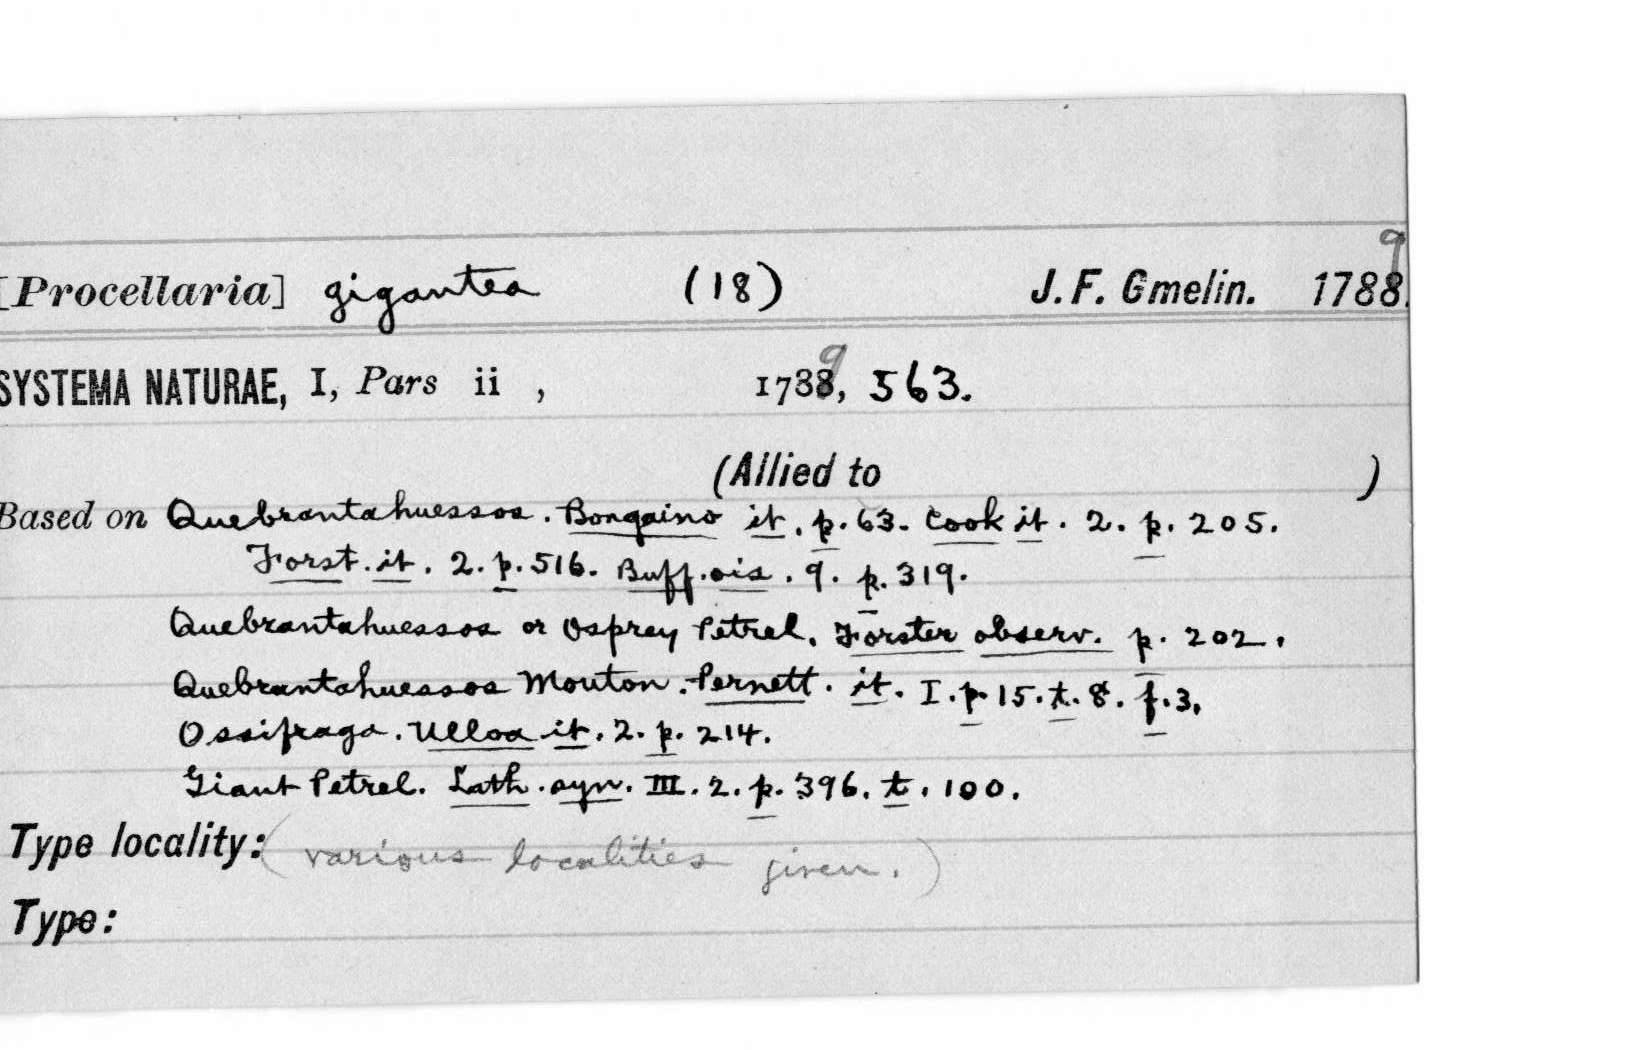 [Procellaria] gigantea (18) J. F. Gmelin. 17889.
SYSTEMA NATURAE, I, Pars ii , 17889, 563.
(Allied to )
Based on Quebrantahuessos. Bongaino it. p. 63. Cook it. 2. p. 205.
Forst. it. 2. p. 516. Buff. ois. 9. p. 319.
Quebrantahuessos or Osprey Petrel. Forster observ. p. 202.
Quebrantahuessos Mouton. Pernett. it. I. p. 15. t. 8. f. 3.
Ossifraga. Ulloa it. 2. p. 214.
Giant Petrel. Lath. syn. III. 2. p. 396. t. 100.
Type locality: (various localities given.)
Type: